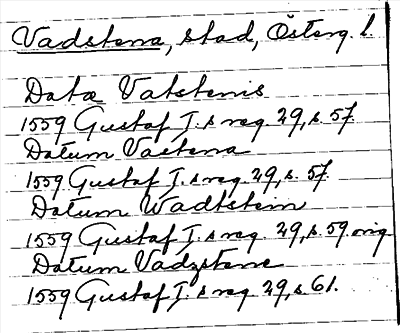 Vadstena, stad, Österg. l.
Datæ Vatstenis
1559 Gustaf I:s reg. 29, s. 57.
Datum Vastena
1559 Gustaf I:s reg. 29, s. 57.
Datum Wadtstein
1559 Gustaf I:s reg. 29, s. 59 orig
Datum Vadzstene
1559 Gustaf I:s reg. 29, s. 61.